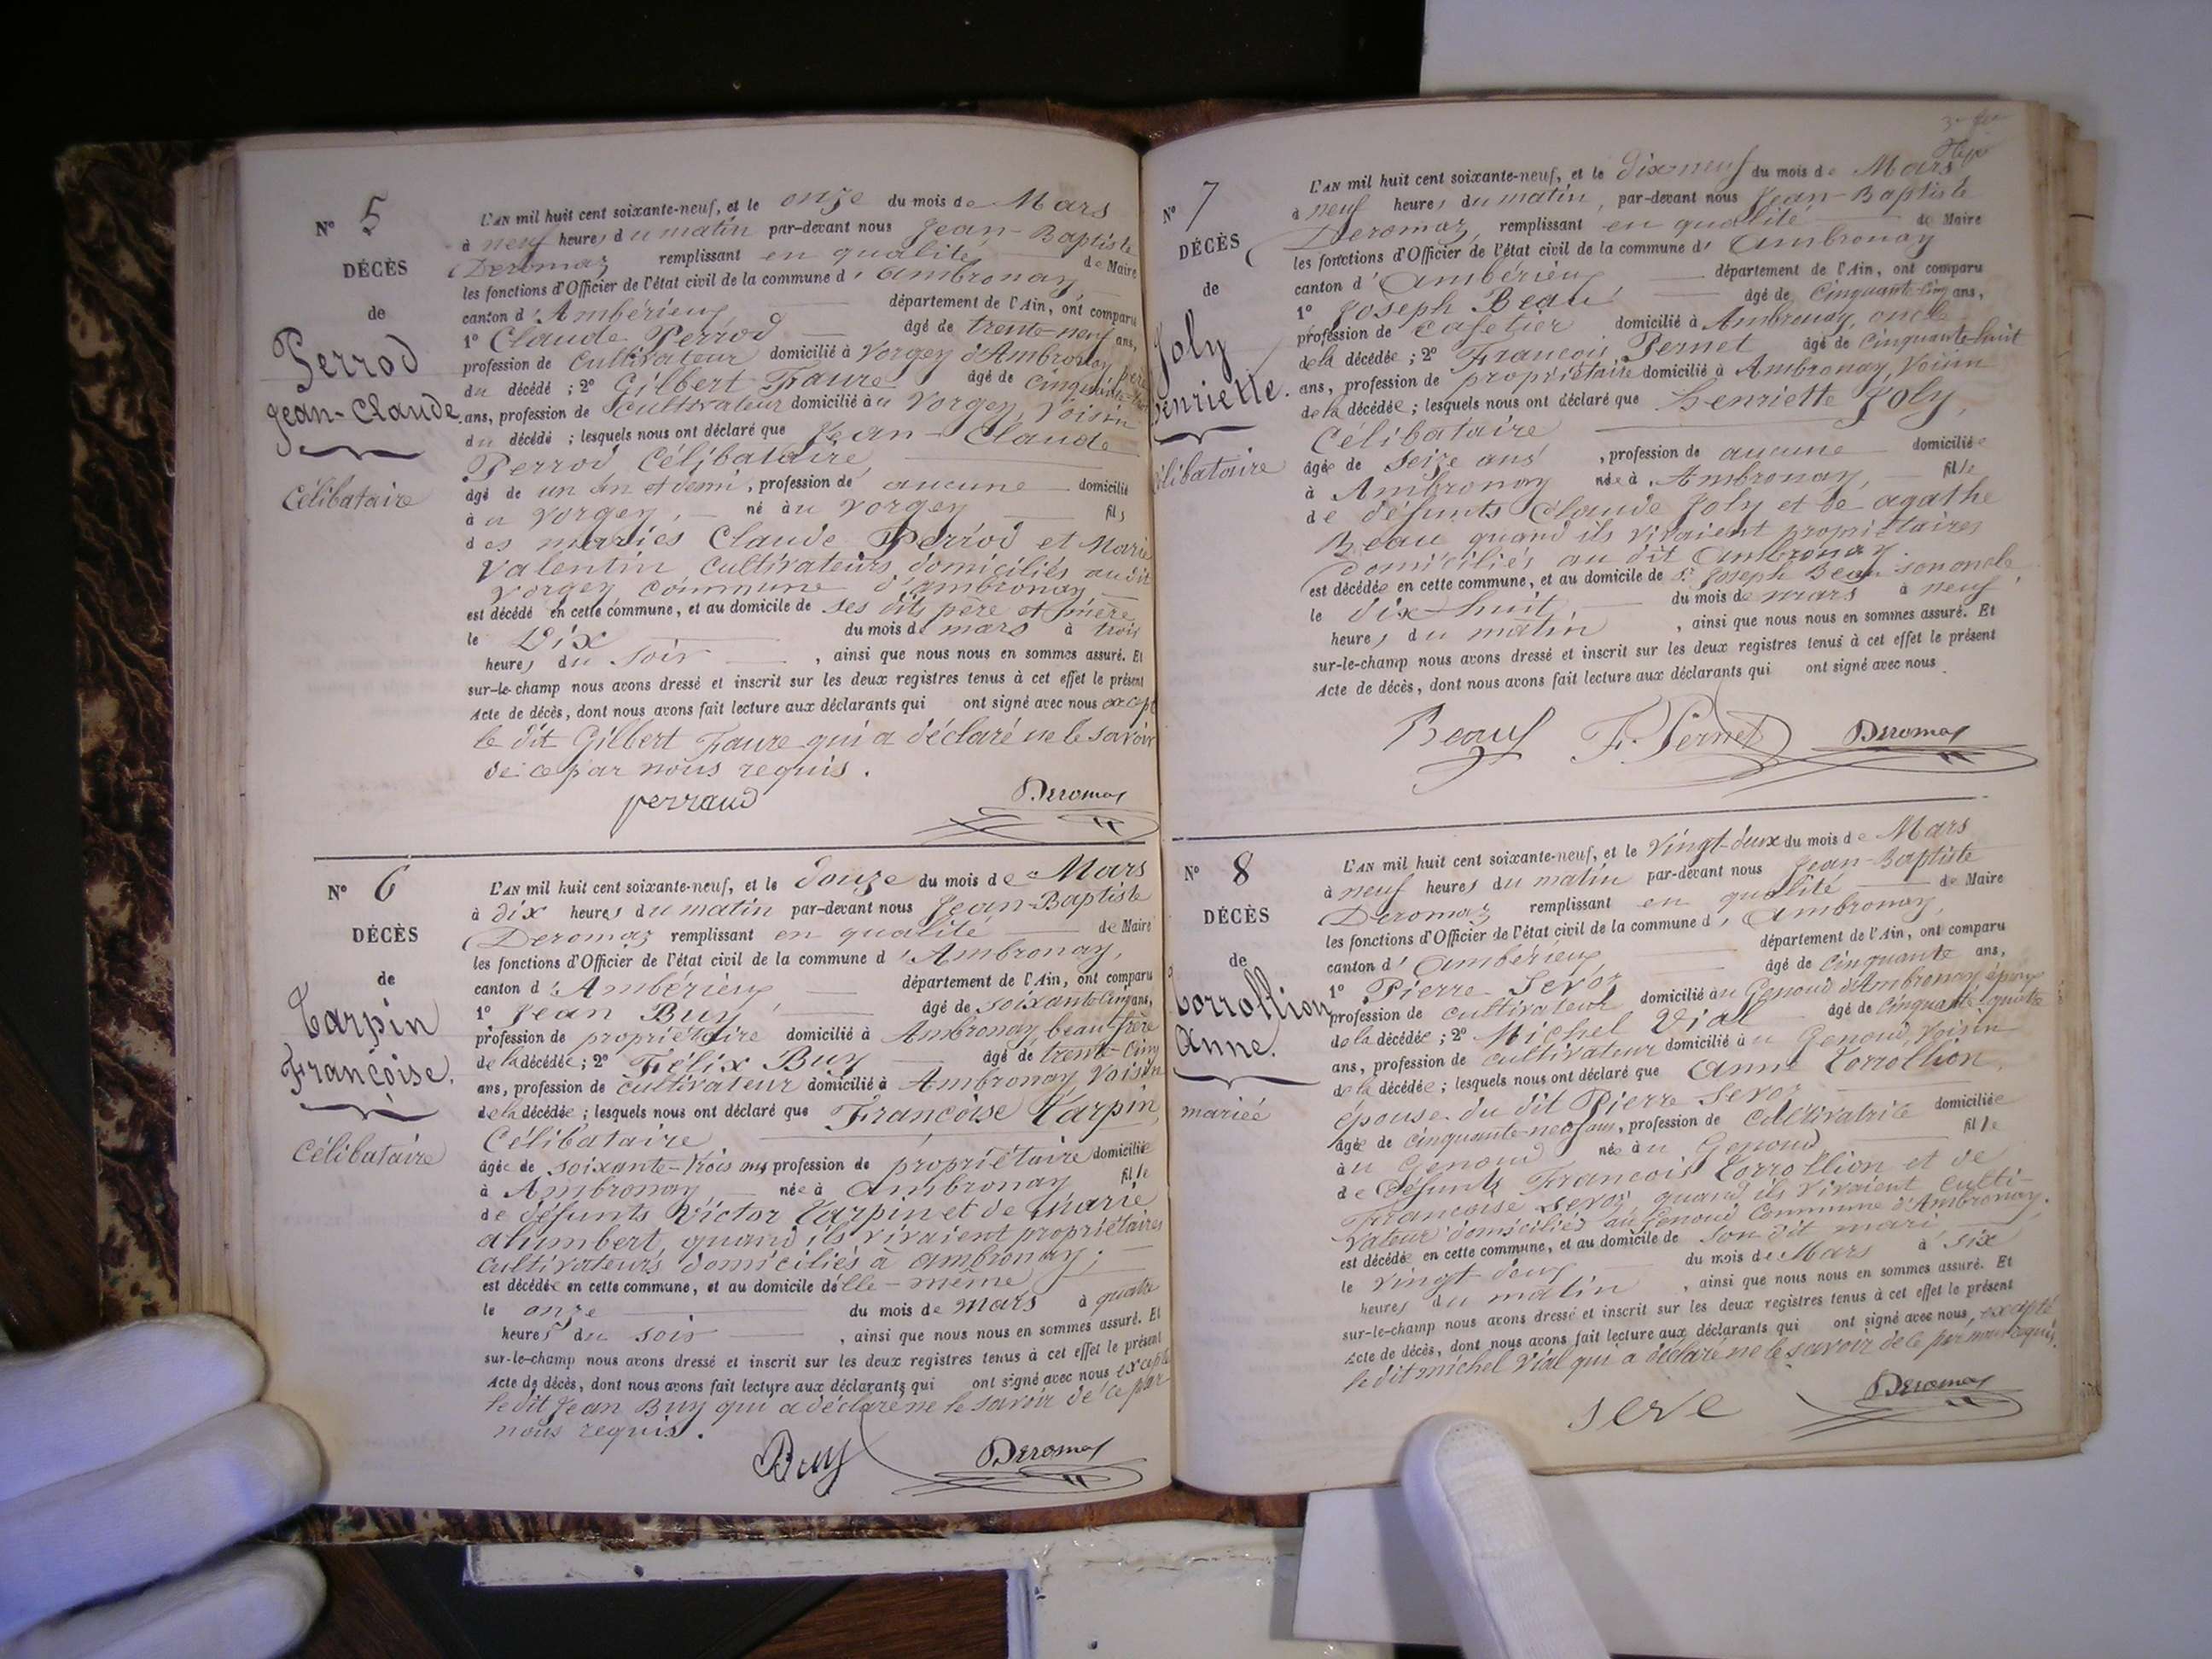 N° 5
DÉCÈS
de
Perrod
Jean-Claude.
Célibataire
L'AN mil huit cent soixante-neuf, et le onze du mois de Mars
à neuf heures du matin par-devant nous Jean-Baptiste
Deromaz remplissant en qualité de Maire
les fonctions d'Officier de l'état civil de la commune d'Ambronay,
canton d'Ambérieux, département de l'Ain, ont comparu
1° Claude Perrod âgé de trente-neuf ans,
profession de Cultivateur domicilié à Vorgey d'Ambronay, père
du décédé ; 2° Gilbert Faure âgé de
ans, profession de cultivateur domicilié au Vorgey, Voisin
du décédé ; lesquels nous ont déclaré que Jean-Claude
Perrod, Célibataire,
âgé de un an et demi, profession de aucune domicilié
à u Vorgey, né au Vorgey fils
des mariés Claude Perrod et Marie
Valentin, cultivateurs, domiciliés au dit
Vorgey, commune d'ambronay,
est décédé en cette commune, et au domicile de ses dits père et mère
le Dix du mois de mars à trois
heures du soir , ainsi que nous nous en sommes assuré. Et
sur-le-champ nous avons dressé et inscrit sur les deux registres tenus à cet effet le présent
Acte de décès, dont nous avons fait lecture aux déclarants qui ont signé avec nous excepté
le dit Gilbert Faure qui a déclaré ne le savoir
de ce par nous requis.
perraud Deromaz
N° 6
DÉCÈS
de
Tarpin
Françoise.
Célibataire
L'AN mil huit cent soixante-neuf, et le douze du mois de Mars
à dix heures du matin par-devant nous Jean-Baptiste
Deromaz remplissant en qualité de Maire
les fonctions d'Officier de l'état civil de la commune d'Ambronay,
canton d'Ambérieux, département de l'Ain, ont comparu
1° Jean Buy, âgé de soixante-cinq ans,
profession de propriétaire domicilié à Ambronay, beau frère
de la décédée ; 2° Félix Buy âgé de trente-cinq
ans, profession de cultivateur domicilié à Ambronay Voisin
de la décédée ; lesquels nous ont déclaré que Françoise Tarpin,
Célibataire,
âgée de soixante-trois ans, profession de propriétaire domiciliée
à Ambronay née à Ambronay fille
de défunts Victor Tarpin et de Marie
alumbert, quand ils vivaient propriétaires
cultivateurs, domiciliés à ambronay ;
est décédée en cette commune, et au domicile d'elle-même
le onze du mois de mars à quatre
heures du soir , ainsi que nous nous en sommes assuré. Et
sur-le-champ nous avons dressé et inscrit sur les deux registres tenus à cet effet le présent
Acte de décès, dont nous avons fait lecture aux déclarants qui ont signé avec nous excepté
le dit Jean Buy qui a déclaré ne le savoir de ce par
nous requis.
Buy Deromaz
N° 7
DÉCÈS
de
Joly
henriette.
célibataire
L'AN mil huit cent soixante-neuf, et le Dix-neuf du mois de Mars
à neuf heures du matin, par-devant nous Jean-Baptiste
Deromaz, remplissant en qualité de Maire
les fonctions d'Officier de l'état civil de la commune d'Ambronay
canton d'Ambérieux, département de l'Ain, ont comparu
1° Joseph Beau, âgé de Cinquante-cinq ans,
profession de Cafetier domicilié à Ambronay, oncle
de la décédée ; 2° François Pernet âgé de cinquante-huit
ans, profession de propriétaire domicilié à Ambronay, Voisin
de la décédée ; lesquels nous ont déclaré que henriette Joly,
Célibataire
âgée de seize ans , profession de aucune domiciliée
à Ambronay née à Ambronay, fille
de défunts Claude Joly et de agathe
Beau quand ils vivaient propriétaires
domiciliés au dit Ambronay.
est décédée en cette commune, et au domicile de Sr Joseph Beau son oncle
le dix-huit, du mois de mars à neuf
heures du matin , ainsi que nous nous en sommes assuré. Et
sur-le-champ nous avons dressé et inscrit sur les deux registres tenus à cet effet le présent
Acte de décès, dont nous avons fait lecture aux déclarants qui ont signé avec nous.
Beau F. Pernet Deromaz
N° 8
DÉCÈS
de
Corrollion
Anne.
mariée
L'AN mil huit cent soixante-neuf, et le Vingt-deux du mois de Mars
à neuf heures du matin par-devant nous Jean-Baptiste
Deromaz remplissant en qualité de Maire
les fonctions d'Officier de l'état civil de la commune d'Ambronay,
canton d'Ambérieux, département de l'Ain, ont comparu
1° Pierre Servoz âgé de cinquante ans,
profession de cultivateur domicilié au Genoud d'Ambronay époux
de la décédée ; 2° Michel Vial âgé de cinquante-quatre
ans, profession de cultivateur domicilié à u Genoud, Voisin
de la décédée ; lesquels nous ont déclaré que Anne Corrollion,
épouse du dit Pierre Servoz
âgée de cinquante-neuf ans, profession de cultivatrice domiciliée
à u Genoud née au Genoud fille
de défunts François Corrollion et de
Françoise Servoz, quand ils vivaient culti-
vateur domiciliés au Genoud Commune d'Ambronay.
est décédée en cette commune, et au domicile de son dit mari
le vingt-deux du mois de Mars à six
heures du matin , ainsi que nous nous en sommes assuré. Et
sur-le-champ nous avons dressé et inscrit sur les deux registres tenus à cet effet le présent
Acte de décès, dont nous avons fait lecture aux déclarants qui ont signé avec nous, excepté
le dit michel Vial qui a déclaré ne le savoir de ce par nous requis.
serve Deromaz